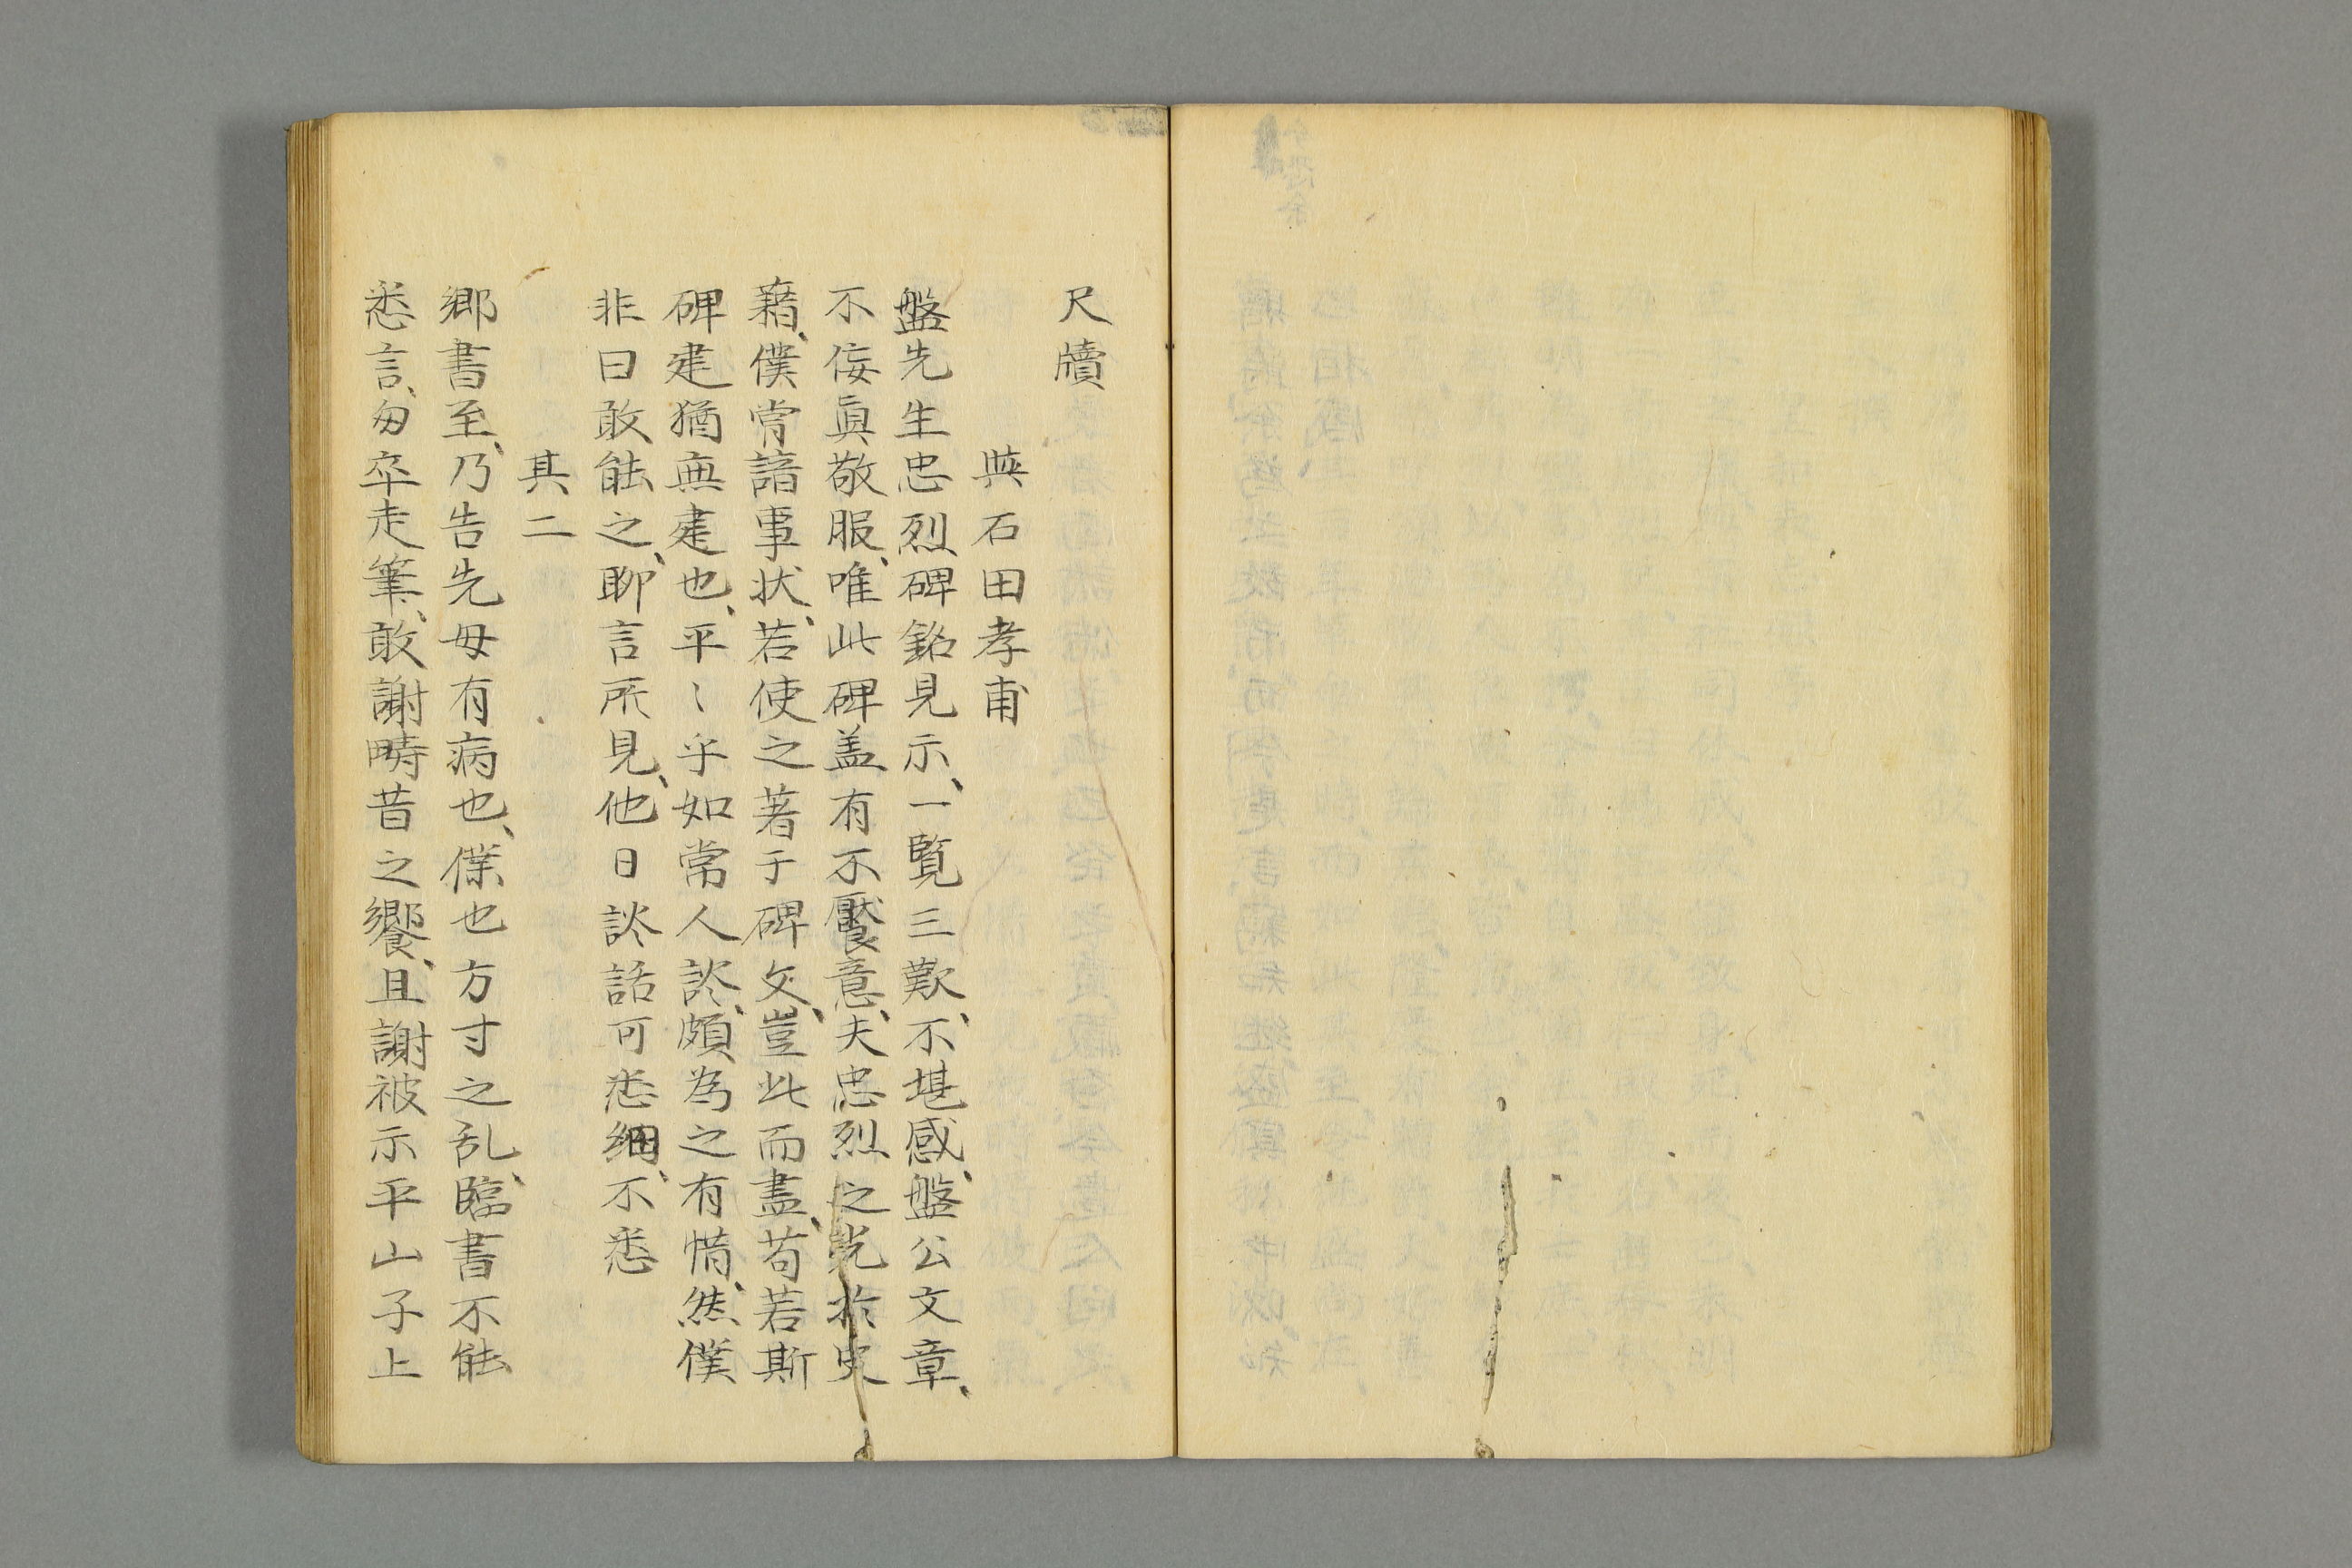 尺牘
與石田孝甫
盤先生忠烈碑銘見示、一覧三歎、不堪感、盤公文章、
不侫眞敬服、唯此碑盖有不饜意、夫忠烈之光於史
籍、僕嘗諳事状、若使之著于碑文、豈此而盡、苟若斯
碑建猶無建也、平〻乎如常人談、頗為之有惜、然僕
非曰敢能之、聊言所見、他日談話可悉細、不悉
其二
郷書至、乃告先母有病也、僕也方寸之乱、臨書不能
悉言、匆卒走筆、敢謝疇昔之饗、且謝被示平山子上